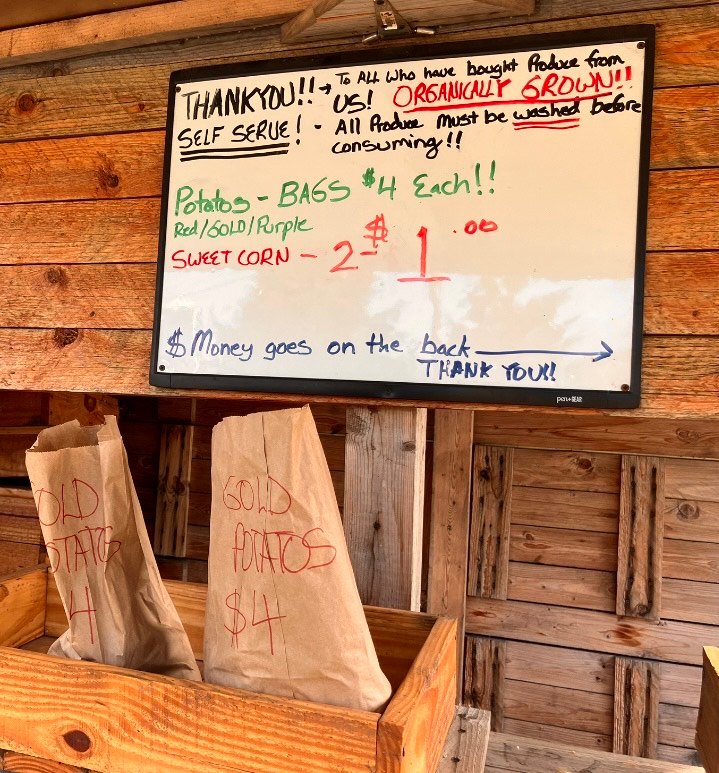 THANKYOU!! → To ALL Who have bought Produce from
US! ORGANICALLY GROWN!!
SELF SERVE! - All Produce Must be washed before
consuming!!
Potatos - BAGS $4 Each!!
Red/GOLD/Purple
SWEET CORN - 2 - $1.00
$ Money goes on the back →
THANK YOU!!
pen+GEAR
OLD
OTATOS
4
GOLD
POTATOS
$4